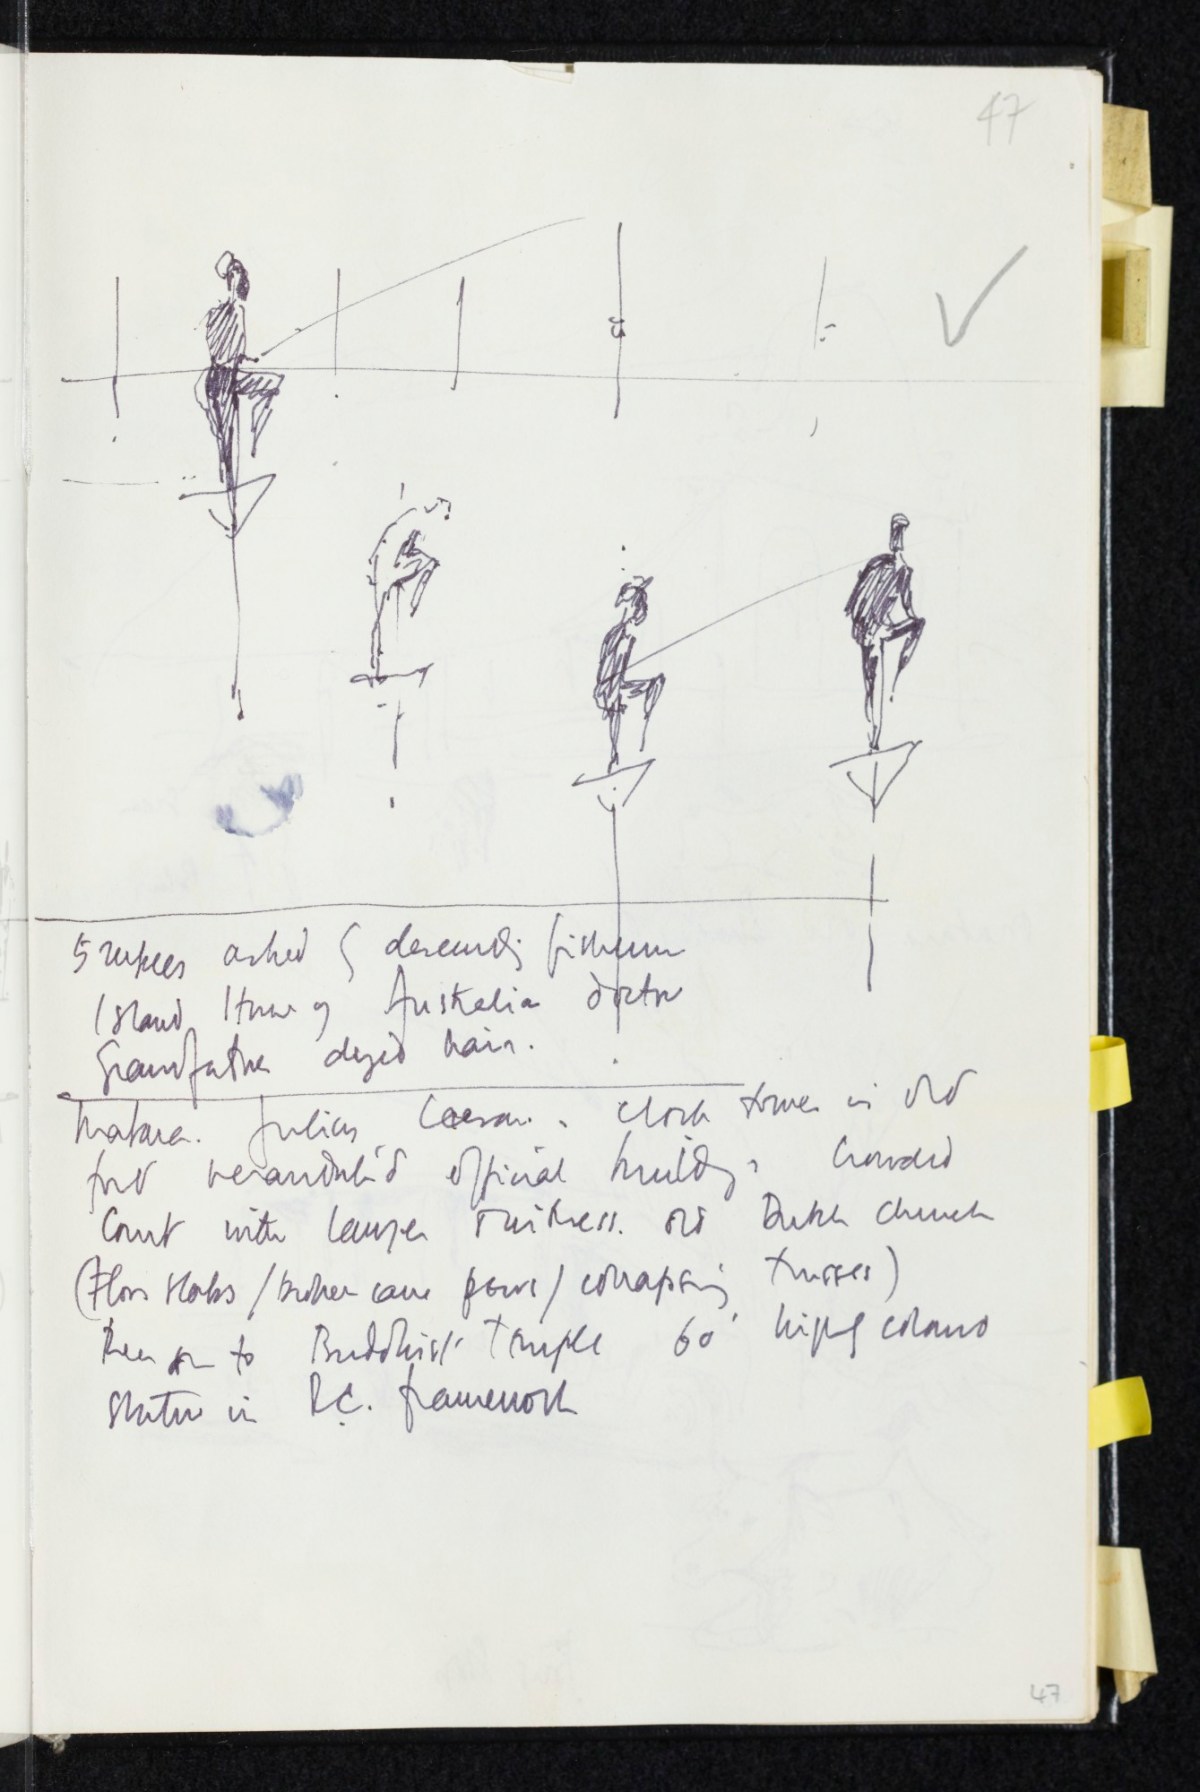 47
5 rupees asked by descending fishermen
Island House of Australia doctor
Grandfather dyed hair.
Matara. Julius Caesar. clock tower in old
fort verandah'd official buildings. Crowded
Court with lawyer witness. old Dutch church
(Floor slabs / broken cane pews / collapsing trusses)
Then on to Buddhist temple 60' high coloured
statue in R.C. framework
47